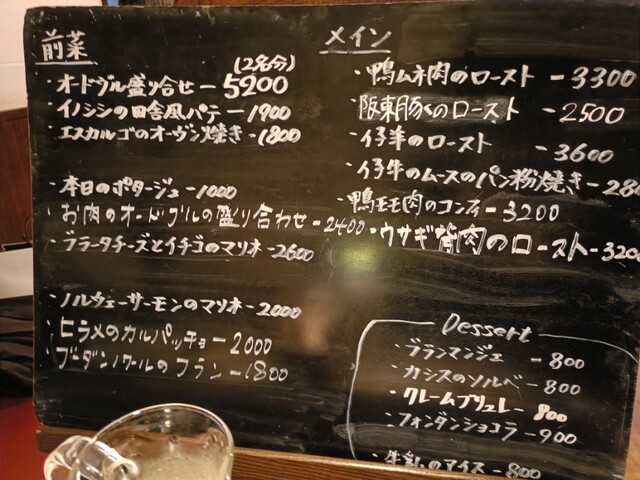 前菜
(2名分)
・オードヴル盛り合せ - 5200
・イノシシの田舎風パテ - 1900
・エスカルゴのオーヴン焼き - 1800
・本日のポタージュ - 1000
・お肉のオードブルの盛り合わせ - 2400
・ブラータチーズとイチゴのマリオ - 2600
・ノルウェーサーモンのマリオ - 2000
・ヒラメのカルパッチョ - 2000
・ブーダンノワールのフラン - 1800
メイン
・鴨ムネ肉のロースト - 3300
・阪東豚のロースト - 2500
・仔羊のロースト - 3600
・仔牛のムースのパン粉焼き - 28
・鴨モモ肉のコンフィ - 3200
・ウサギ背肉のロースト - 3200
Dessert
・ブランマンジェ - 800
・カシスのソルベ - 800
・クレームブリュレ - 800
・フォンダンショコラ - 900
・牛乳のアイス - 800